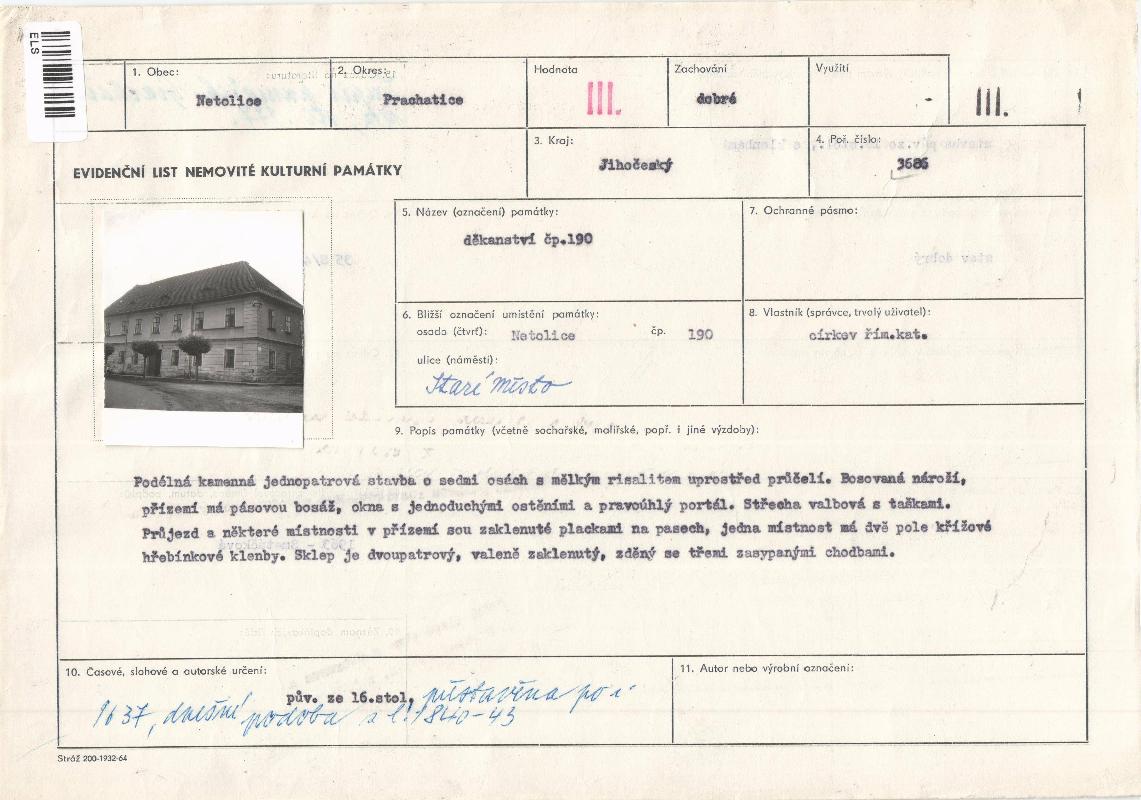 ELS
1. Obec:
Netolice
2. Okres:
Prachatice
Hodnota
III.
Zachování
dobré
Využití
-
III.
3. Kraj:
Jihočeský
4. Poř. číslo:
3686
EVIDENČNÍ LIST NEMOVITÉ KULTURNÍ PAMÁTKY
5. Název (označení) památky:
děkanství čp.190
7. Ochranné pásmo:
6. Bližší označení umístění památky:
osada (čtvrť): Netolice čp. 190
ulice (náměstí):
Staré město
8. Vlastník (správce, trvalý uživatel):
církev řím.kat.
9. Popis památky (včetně sochařské, malířské, popř. i jiné výzdoby):
Podélná kamenná jednopatrová stavba o sedmi osách s mělkým risalitem uprostřed průčelí. Bosovaná nároží,
přízemí má pásovou bosáž, okna s jednoduchými ostěními a pravoúhlý portál. Střecha valbová s taškami.
Průjezd a některé místnosti v přízemí sou zaklenuté plackami na pasech, jedna místnost má dvě pole křížové
hřebínkové klenby. Sklep je dvoupatrový, valeně zaklenutý, zděný se třemi zasypanými chodbami.
10. Časové, slohové a autorské určení:
pův. ze 16.stol, přístavěna po r.
1637, dnešní podoba z l. 1840-43
11. Autor nebo výrobní označení:
Stráž 200-1932-64